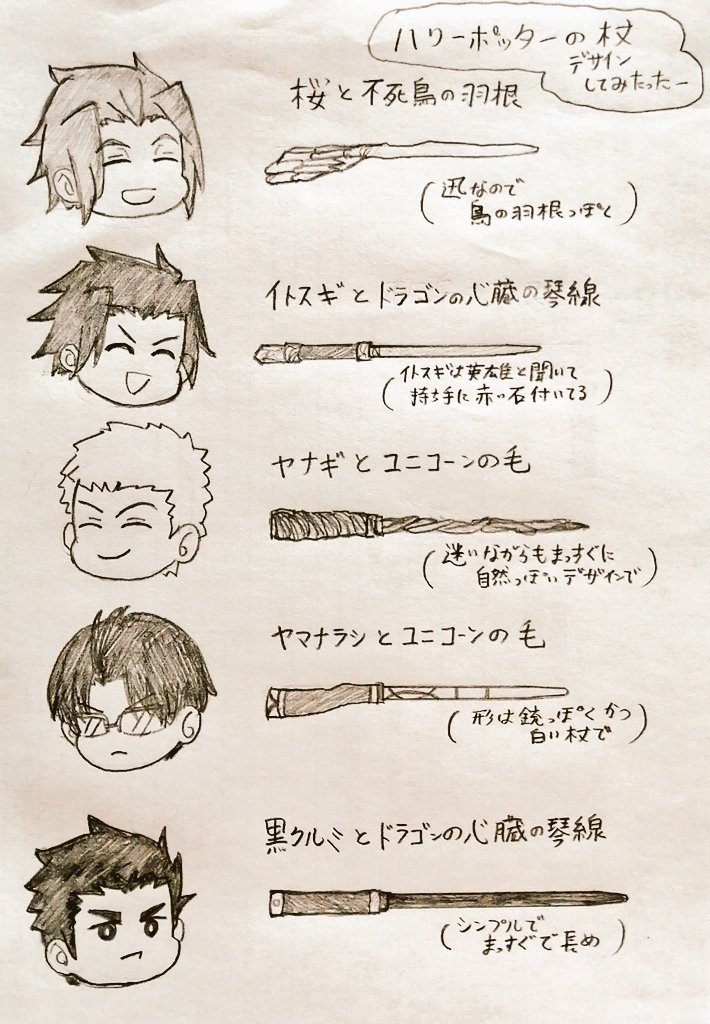 ハリーポッターの杖
デザイン
してみたったー
桜と不死鳥の羽根
(迅なので
鳥の羽根っぽく)
イトスギとドラゴンの心臓の琴線
(イトスギは英雄と聞いて
持ち手に赤い石付いてる)
ヤナギとユニコーンの毛
(迷いながらもまっすぐに
自然っぽいデザインで)
ヤマナラシとユニコーンの毛
(形は銃っぽくかつ
白い杖で)
黒クルミとドラゴンの心臓の琴線
(シンプルで
まっすぐで長め)